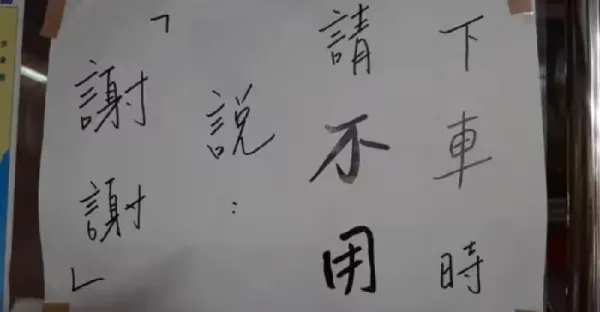 下車時
請不用
說：
「謝謝」